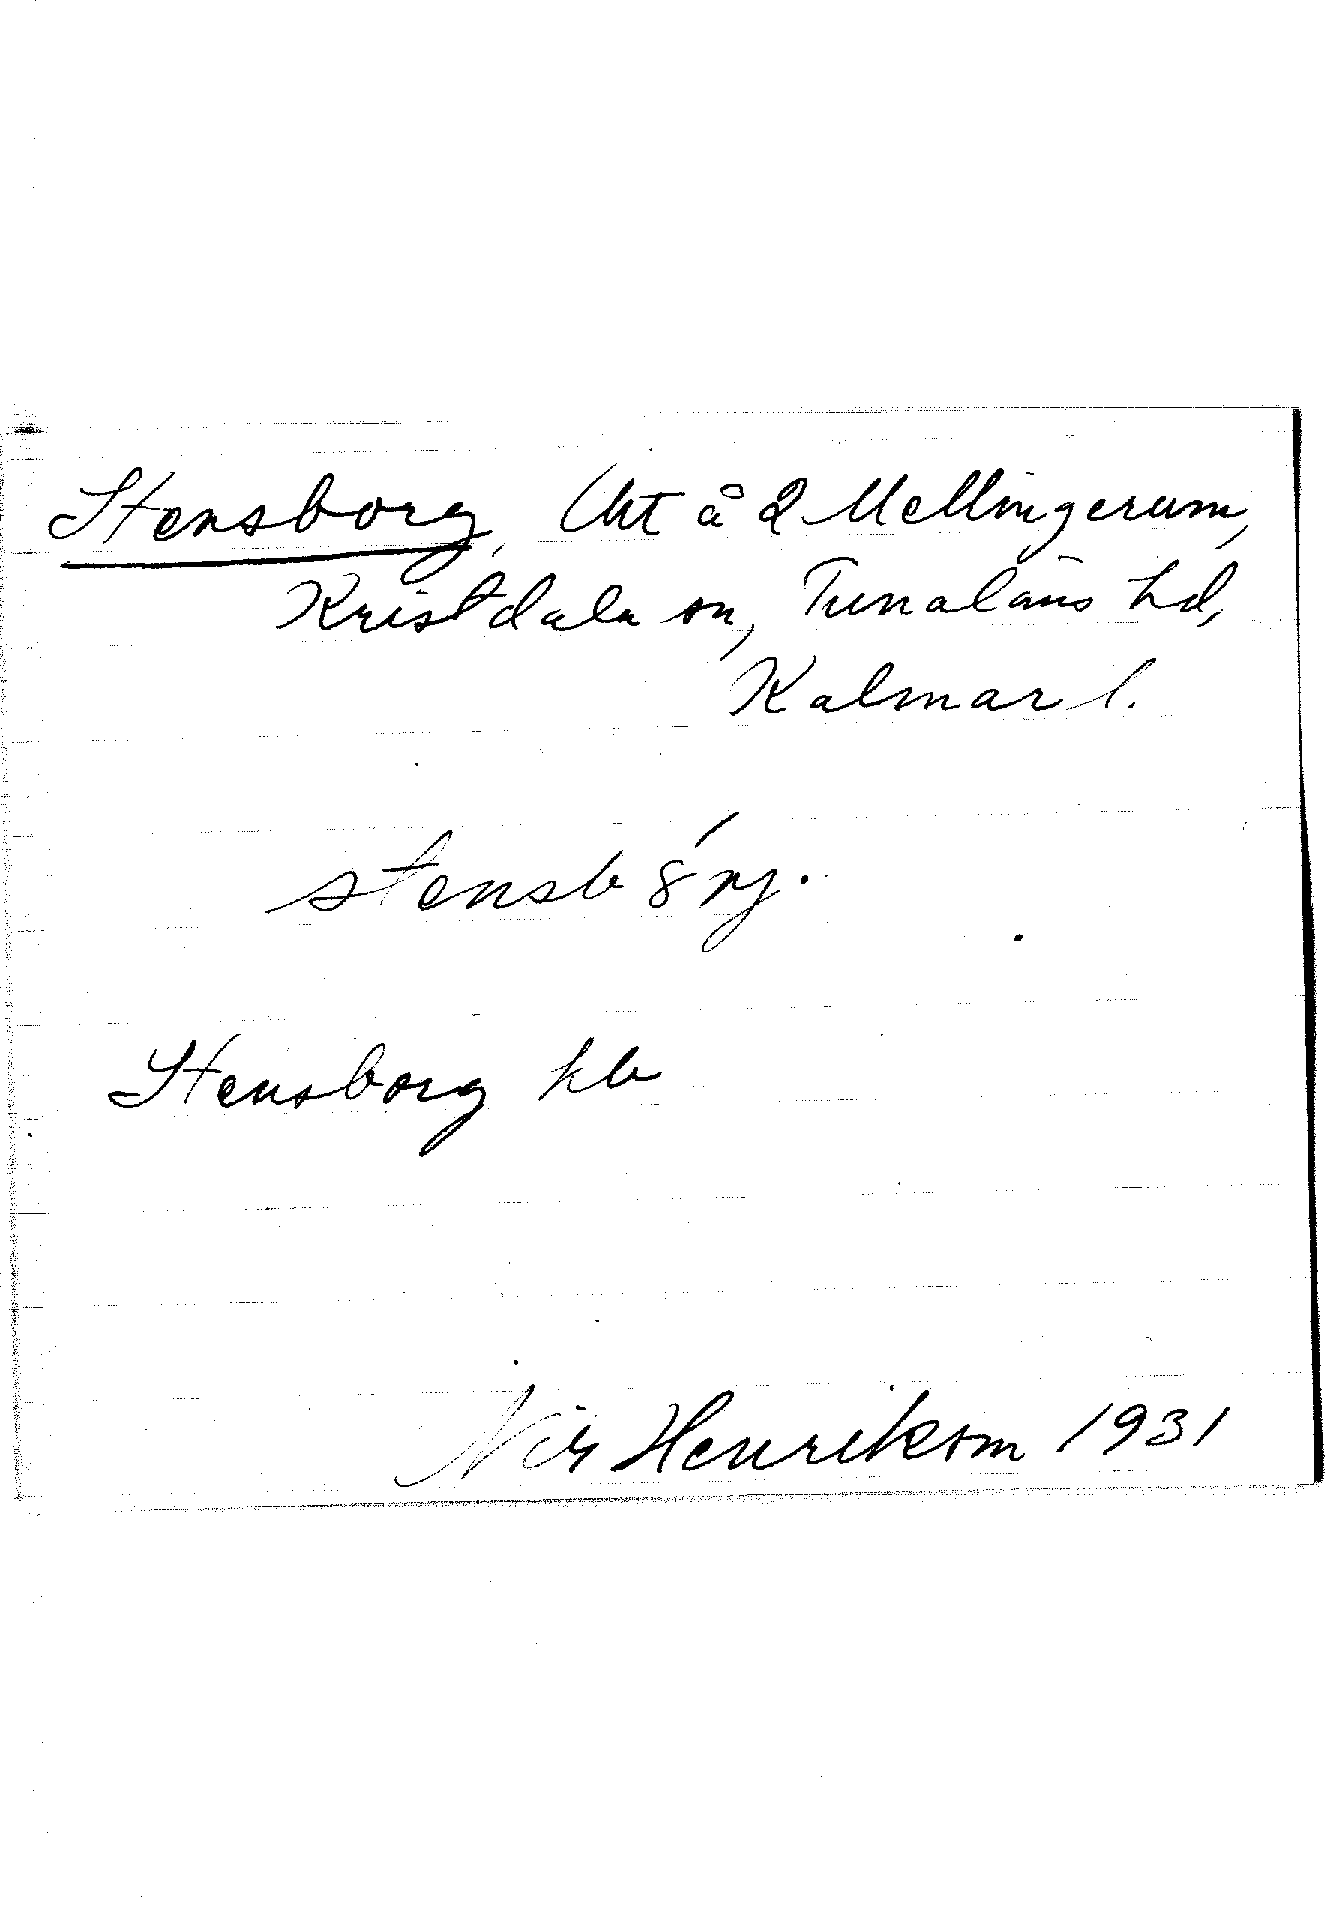 Stensborg, lht å 2 Mellingerum,
Kristdala sn, Tunaläns hd,
Kalmar l.
stensbȣ́rj.
Stensborg kb
Henrikson 1931